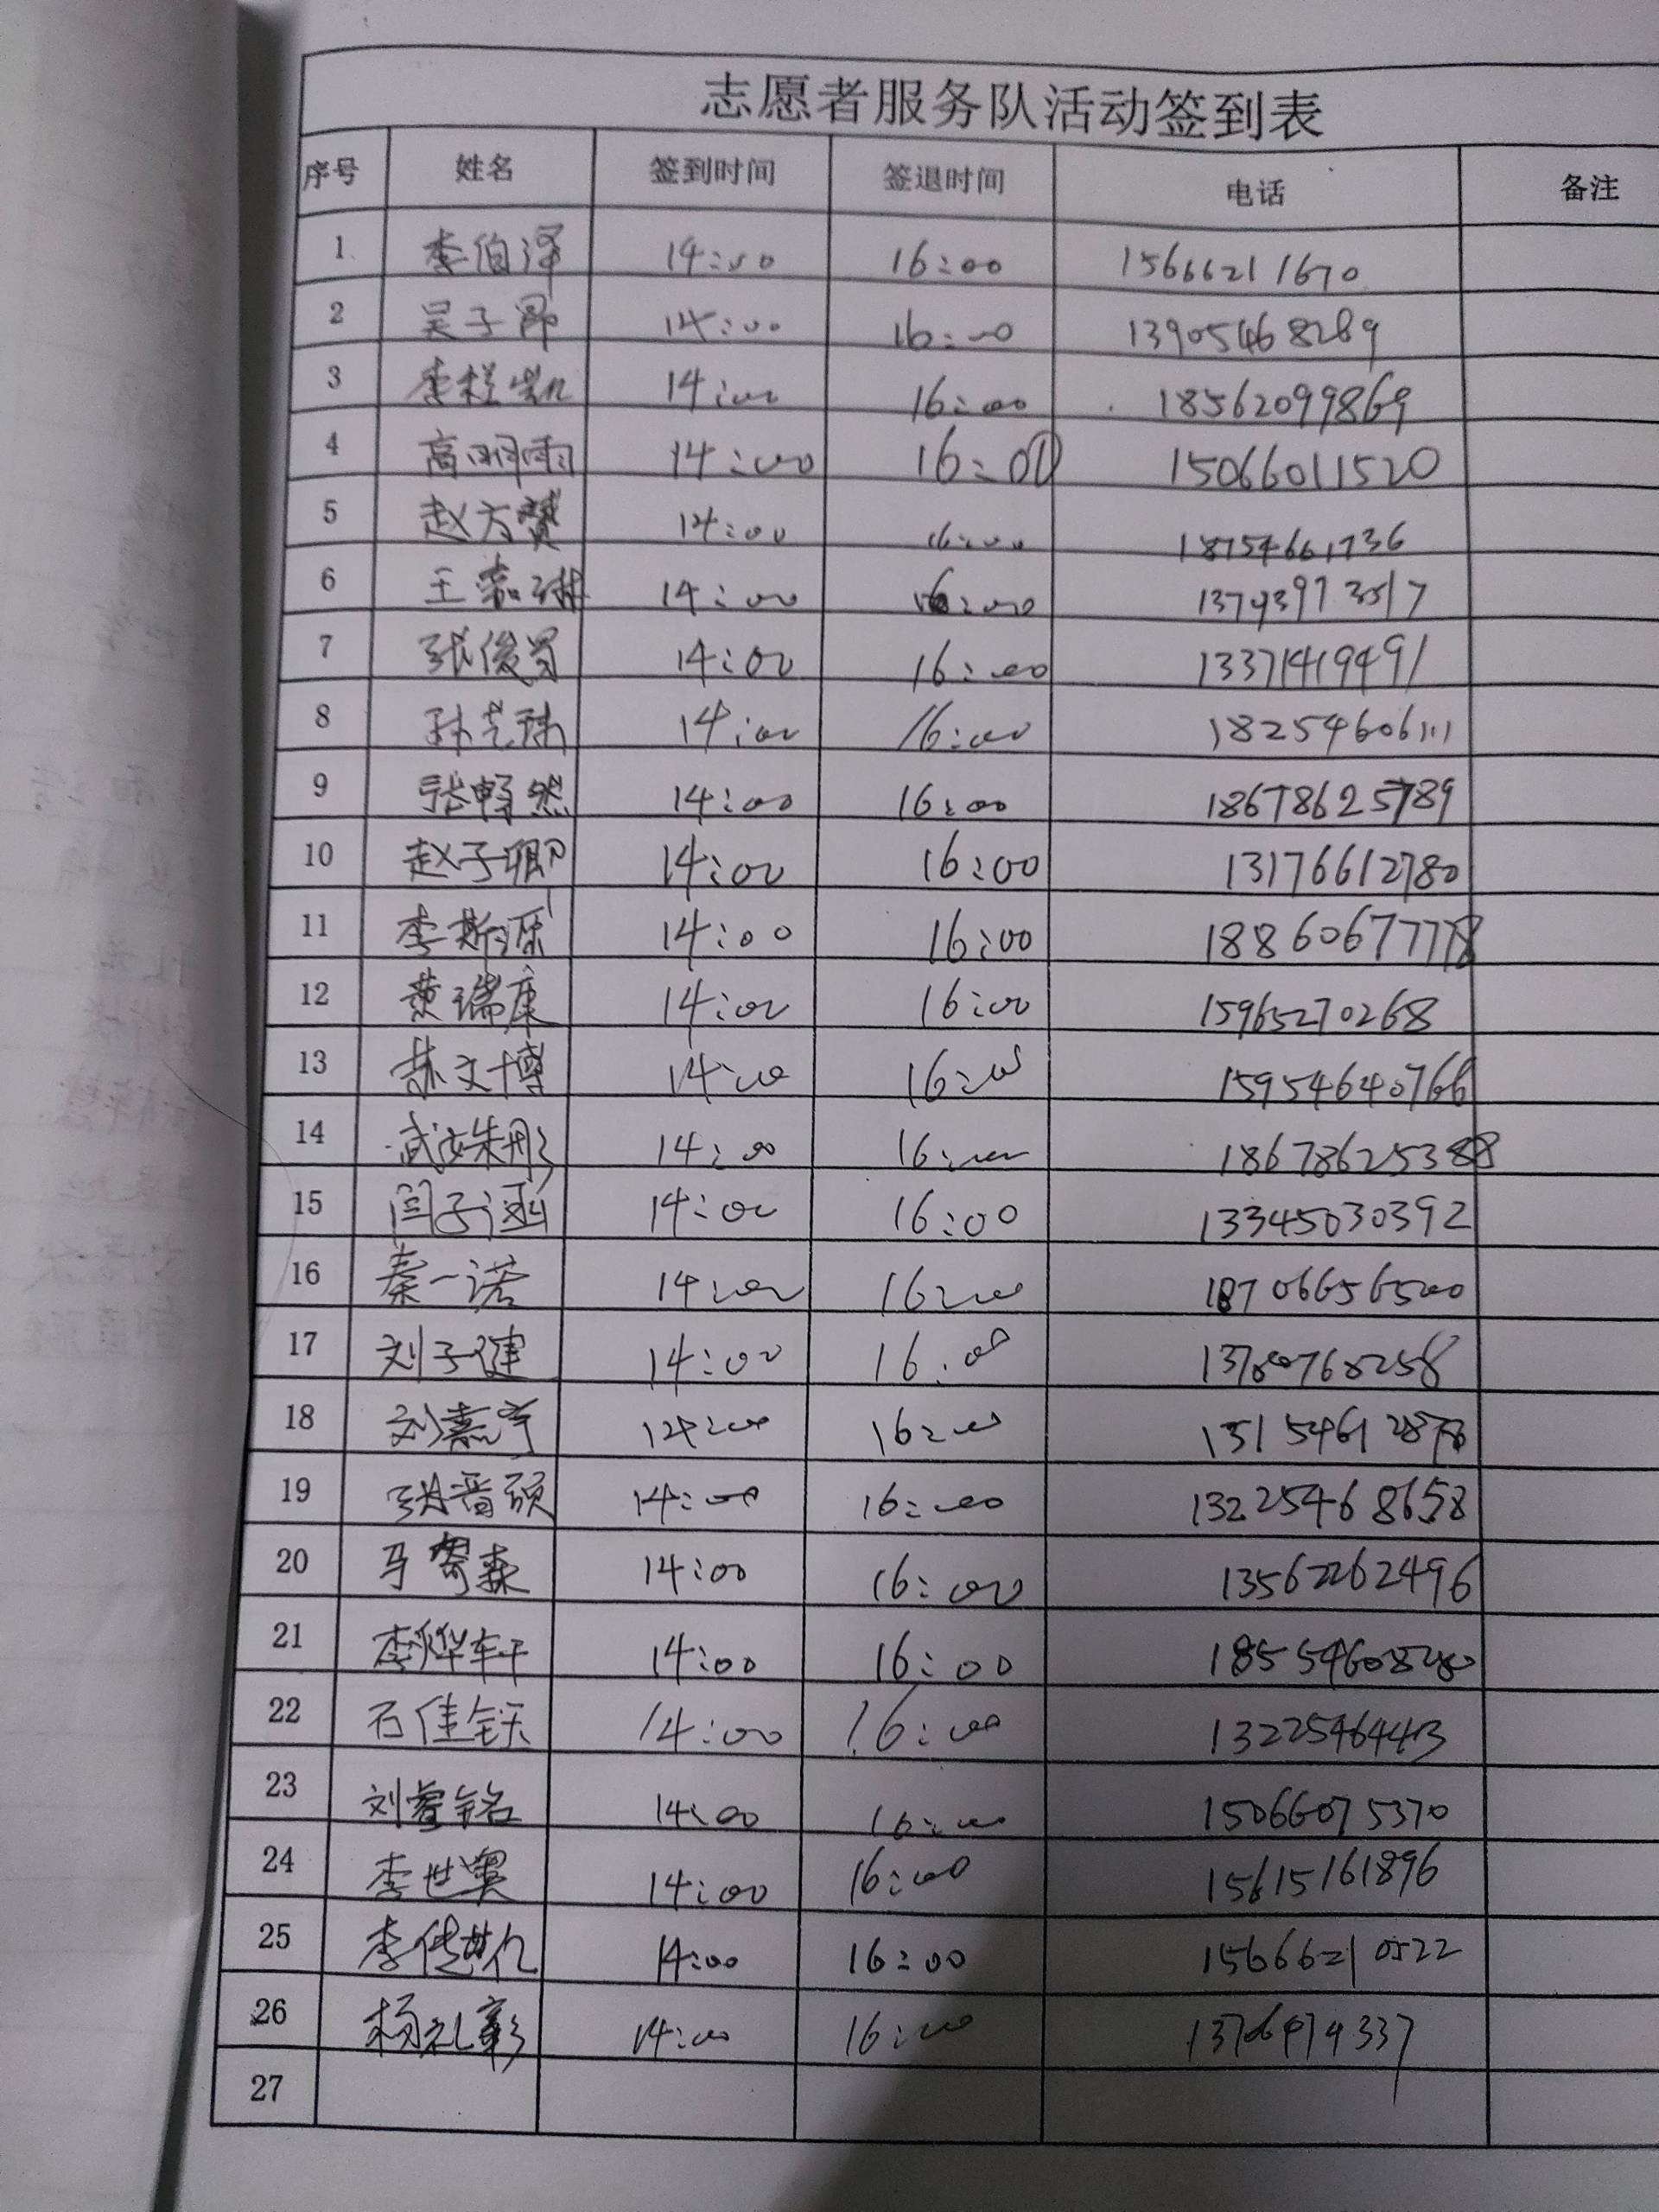 志愿者服务队活动签到表
序号 姓名 签到时间 签退时间 电话 备注
1 李伯泽 14:00 16:00 15666211670
2 吴子郡 14:00 16:00 13905468289
3 李桂凯 14:00 16:00 18562099869
4 高明雨 14:00 16:00 15066011520
5 赵方赞 14:00 16:00 18754661736
6 王嘉琳 14:00 16:00
7 张俊 14:00 16:00 13371419491
8 孙艺玮 14:00 16:00 18254606111
9 张畅然 14:00 16:00 18678625789
10 赵子卿 14:00 16:00 13176612780
11 李斯源 14:00 16:00 18860677778
12 黄瑞康 14:00 16:00 15965270268
13 苏文博 14:00 16:00 15954640766
14 武姝彤 14:00 16:00 18678625388
15 闫子涵 14:00 16:00 13345030392
16 秦一诺 14:00 16:00 18706656500
17 刘子健 14:00 16:00
18 刘嘉宇 14:00 16:00
19 张晋硕 14:00 16:00 13225468658
20 马睿森 14:00 16:00 13562262496
21 李烨轩 14:00 16:00 18554608280
22 石佳钰 14:00 16:00 1322546443
23 刘睿铭 14:00 16:00 15066075370
24 李世奥 14:00 16:00 15615161896
25 李传世亿 14:00 16:00 15666210522
26 杨礼彰 14:00 16:00
27